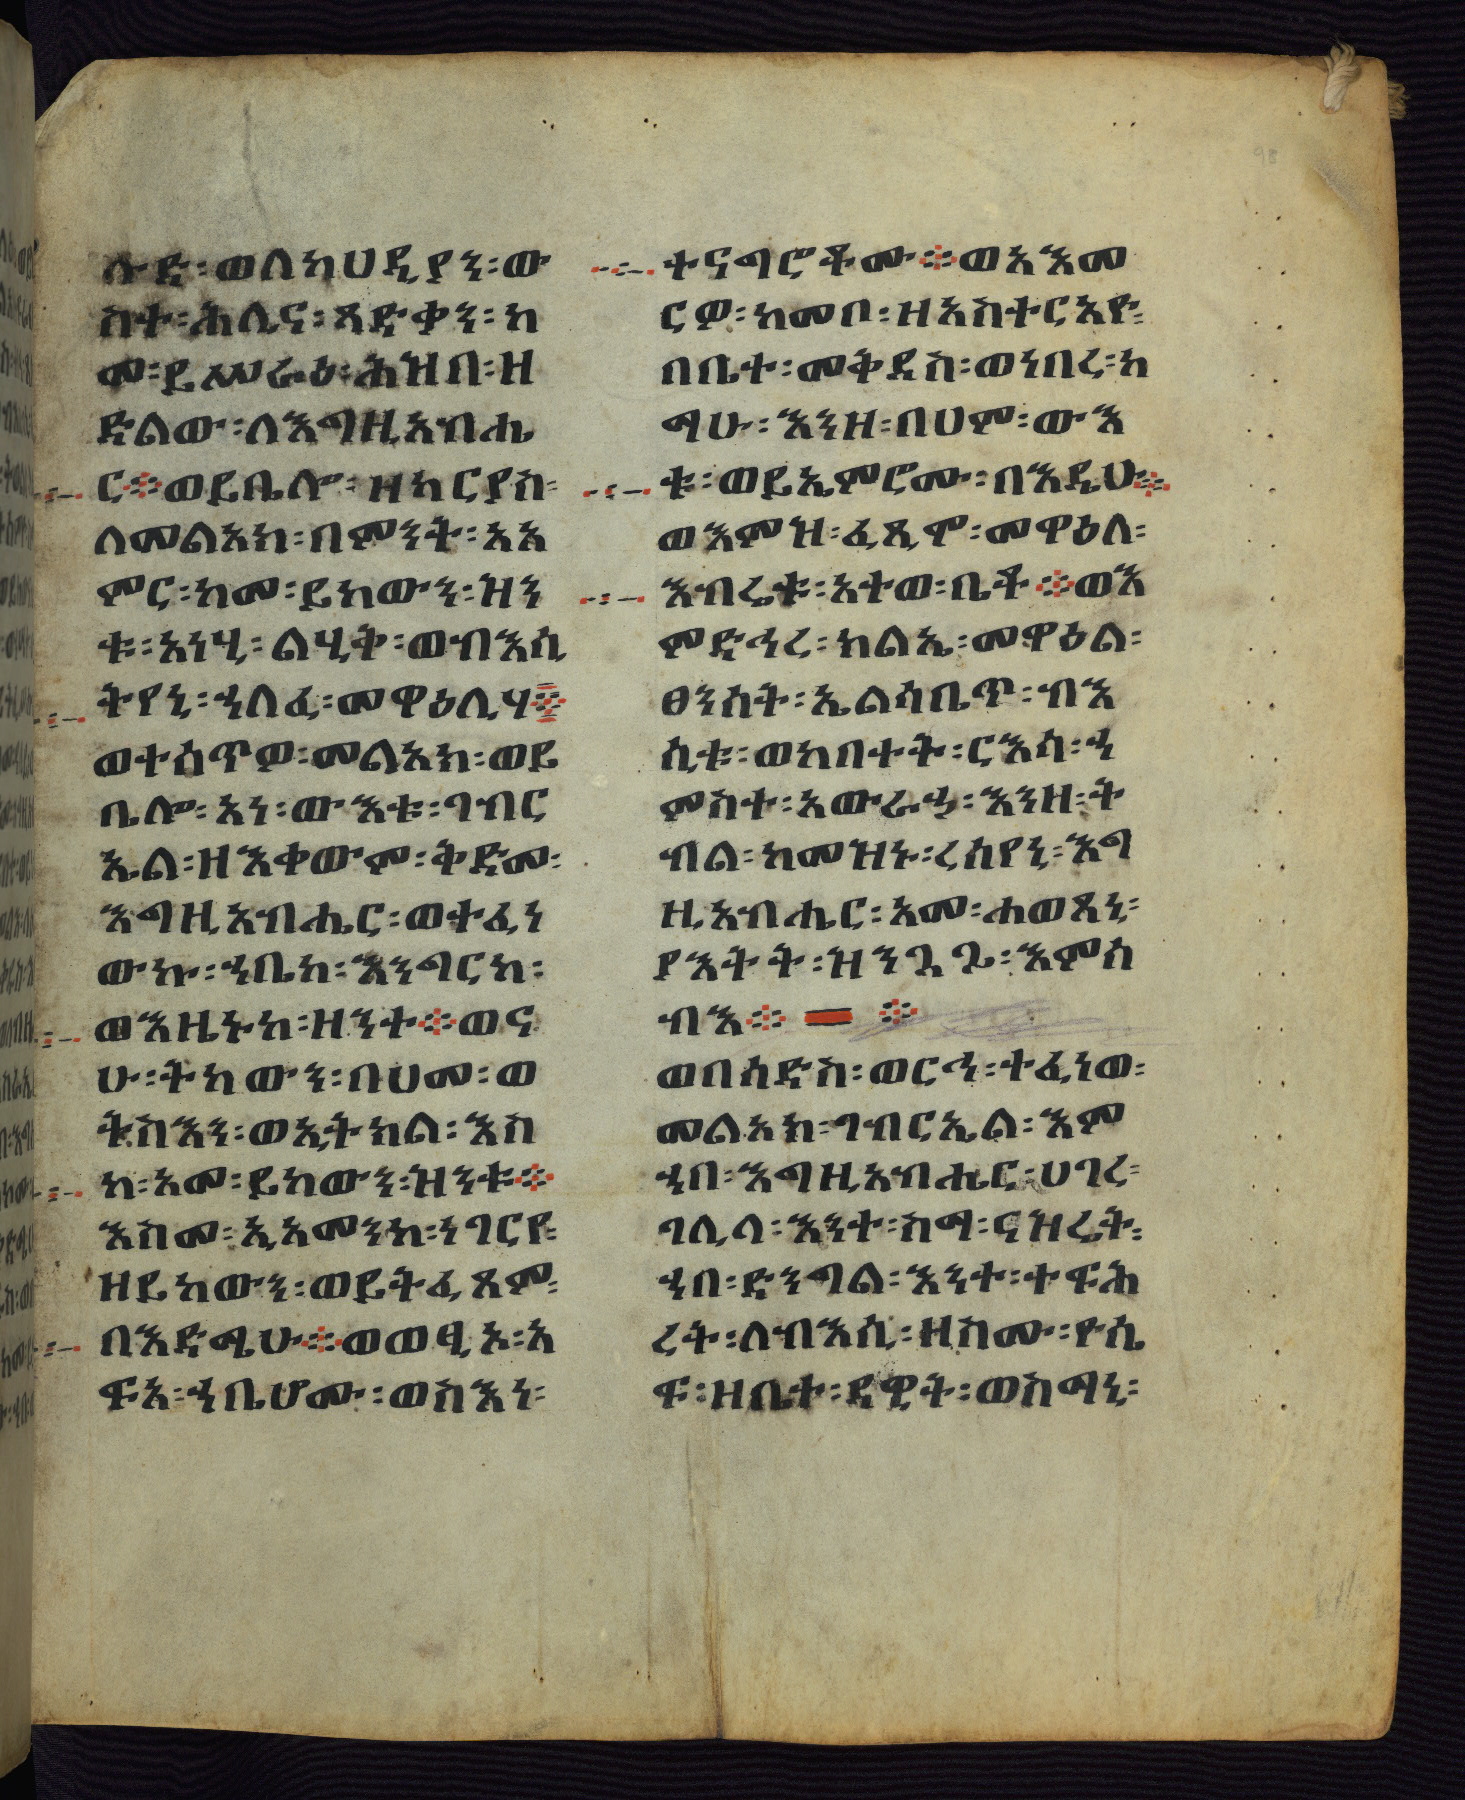 ሉድ፡ወለከሀዲያን፡ው
ስተ፡ሕሊና፡ጻድቃን፡ከ
መ፡ይሠራዕ፡ሕዝበ፡ዘ
ድልው፡ለእግዚአብሔ
ር፨ወይቤሎ፡ዘካርያስ፡
ለመልአክ፡በምንት፡አአ
ምር፡ከመ፡ይከውን፡ዝን
ቱ፡አነሂ፡ልሂቅ፡ወብእሲ
ትየኒ፡ኀለፈ፡መዋዕሊሃ፨
ወተሰጥዎ፡መልአክ፡ወይ
ቤሎ፡አነ፡ውእቱ፡ገብር
ኤል፡ዘእቀውም፡ቅድመ፡
እግዚአብሔር፡ወተፈነ
ውኩ፡ኀቤከ፡እንግርከ፡
ወእዜኑከ፡ዘንተ፨ወና
ሁ፡ትከውን፡በሀመ፡ወ
ትስእን፡ወኢትክል፡እስ
ከ፡አመ፡ይከውን፡ዝንቱ፨
እስመ፡ኢአመንከ፡ነገርየ፡
ዘይከውን፡ወይትፌጸም፡
በእድሜሁ፨ወወፂኦ፡አ
ፍአ፡ኀቤሆሙ፡ወስእነ፡
ተናግሮቶሙ፨ወአእመ
ርዎ፡ከመቦ፡ዘአስተርአዮ፡
በቤተ፡መቅደስ፡ወነበረ፡ከ
ማሁ፡እንዘ፡በሀም፡ውእ
ቱ፡ወይኤምሮሙ፡በእዴሁ፨
ወእምዝ፡ፈጺሞ፡መዋዕለ፡
እብሬቱ፡አተወ፡ቤቶ፨ወእ
ምድኅረ፡ክልኤ፡መዋዕል፡
ፀንሰት፡ኤልሳቤጥ፡ብእ
ሲቱ፡ወከበተት፡ርእሳ፡ኀ
ምስተ፡አውራኃ፡እንዘ፡ት
ብል፡ከመዝኑ፡ረሰየኒ፡እግ
ዚአብሔር፡አመ፡ሐወጸኒ፡
ያእትት፡ዝንጓጔ፡እምሰ
ብእ፨ ፨
ወበሳድስ፡ወርኅ፡ተፈነወ፡
መልአክ፡ገብርኤል፡እም
ኀበ፡እግዚአብሔር፡ሀገረ፡
ገሊላ፡እንተ፡ስማ፡ናዝሬት፡
ኀበ፡ድንግል፡እንተ፡ተፍሕ
ረት፡ለብእሲ፡ዘስሙ፡ዮሴ
ፍ፡ዘቤተ፡ዳዊት፡ወስማኒ፡